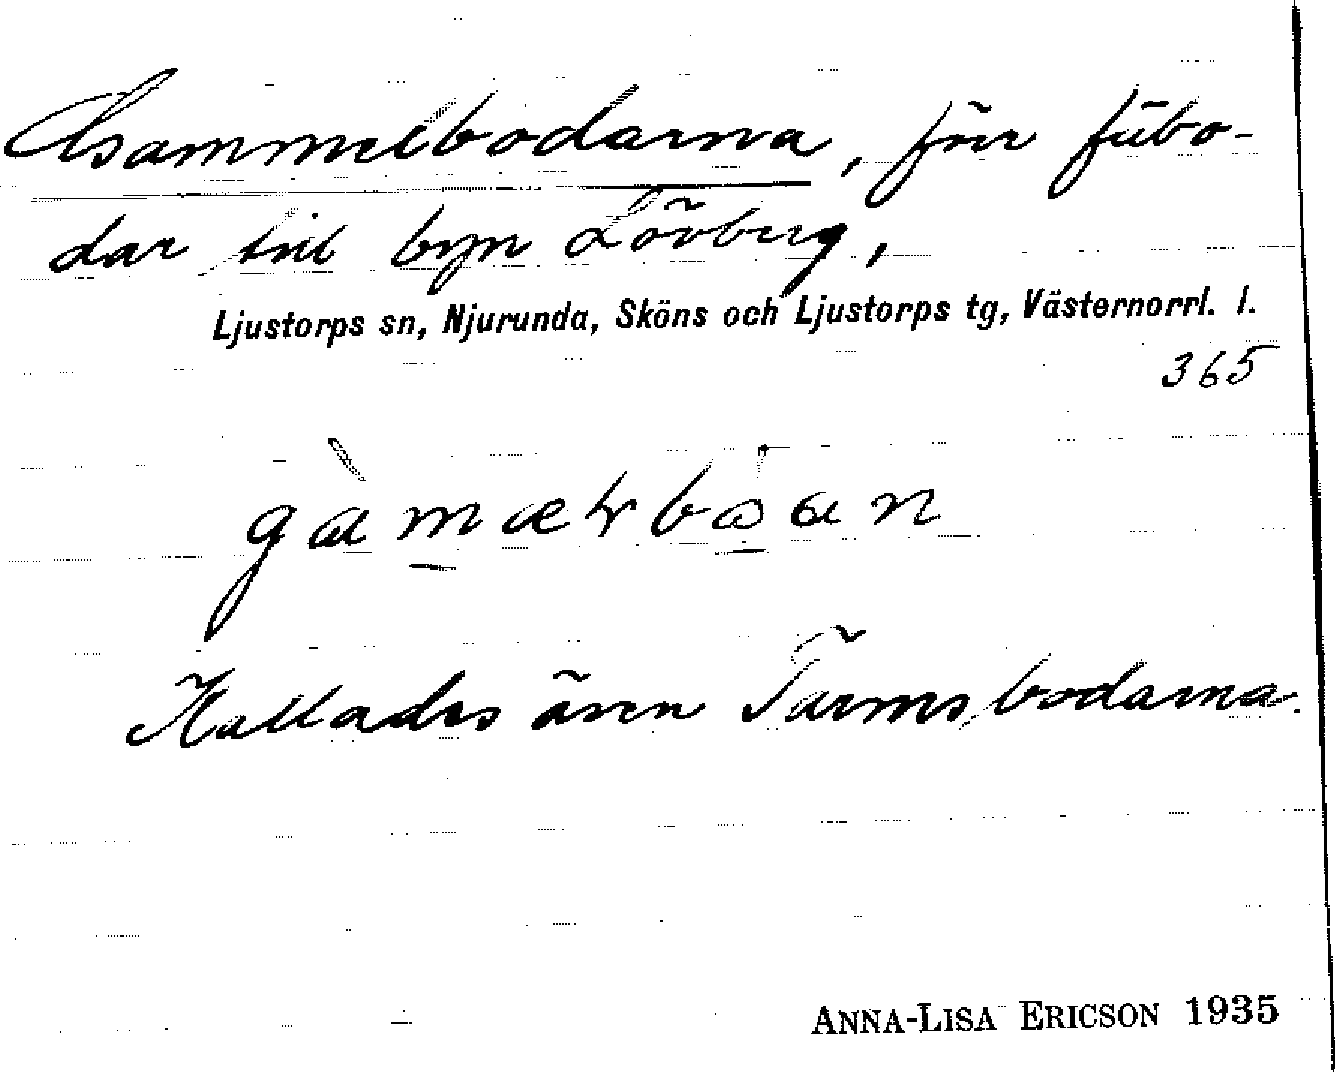 Gammelbodarna, förr fäbo-
dar till byn Lövberg,
Ljustorps sn, Njurunda, Sköns och Ljustorps tg, Västernorrl. l.
365
Kallades även Tarmsbodarna.
ANNA-LISA ERICSON 1935